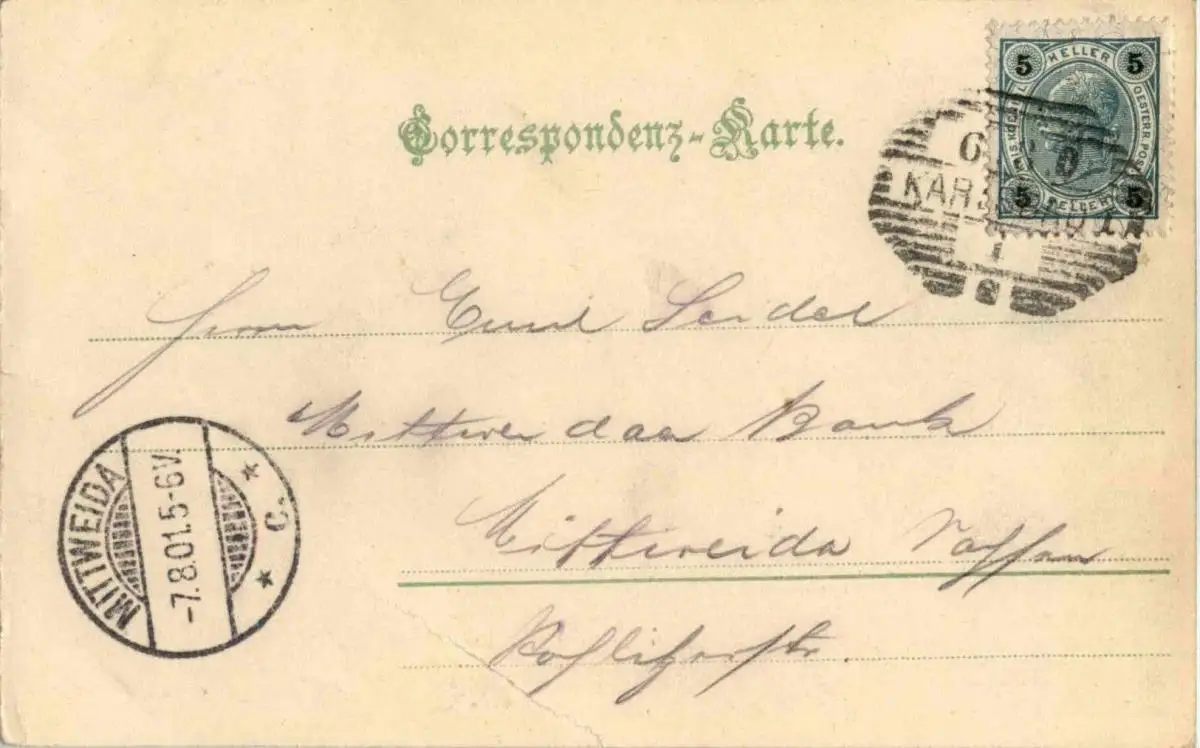 Correspondenz-Karte.
5 HELLER 5
OESTERR. POST
5 HELLER 5
6 8
KARLSBAD 1
1
Herrn Emil Seidel
Mittweidaer Bank
Mittweida Sachsen
MITTWEIDA
-7.8.01.5-6V.
* C. *